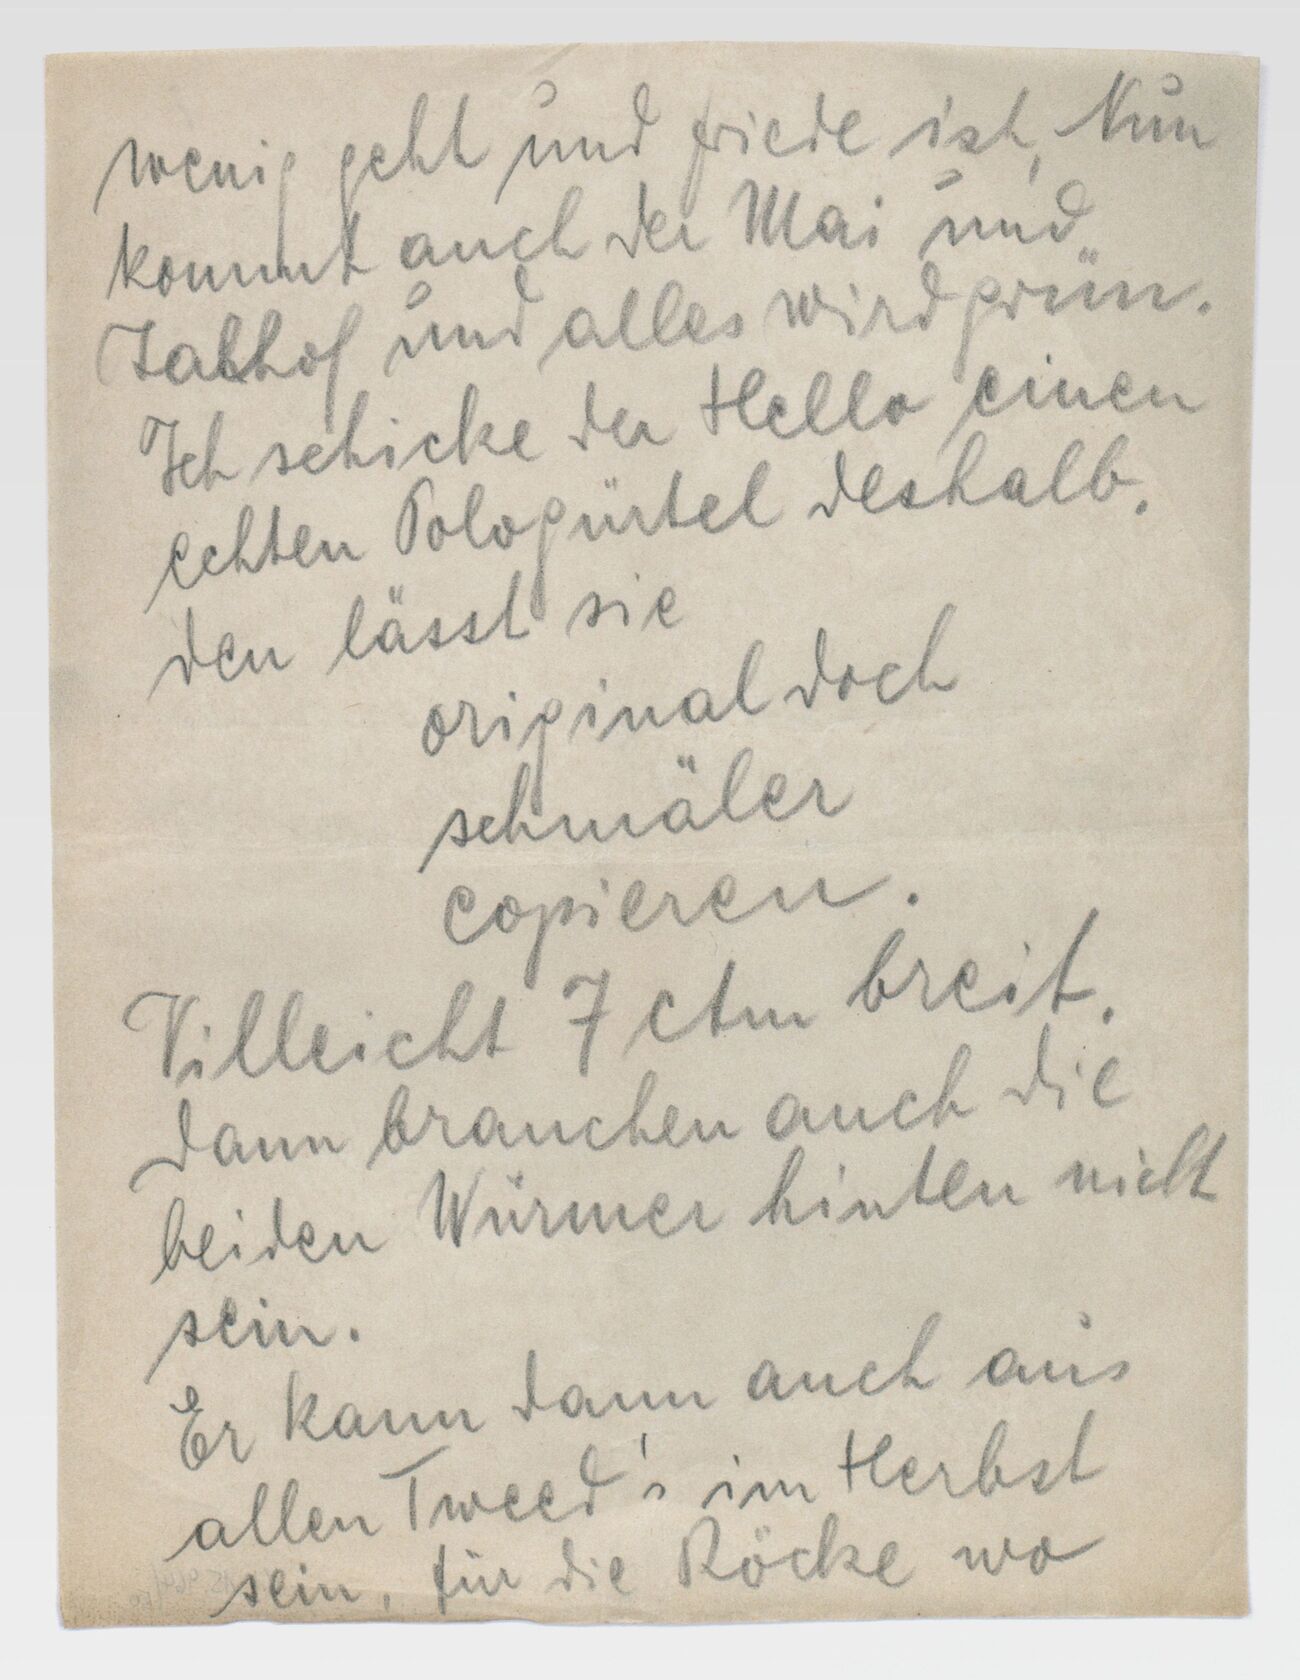 wenig geht und friede ist, Nun
kommt auch der Mai und
und alles wird grün.
Ich schicke der Hello einen
echten Pologürtel deshalb.
den lässt sie
original doch
schmäler
copieren.
Villeicht 7 ctm breit.
dann brauchen auch die
beiden Würmer hinten nicht
sein.
Er kann dann auch aus
allen Tweed's im Herbst
sein, für die Röcke wo